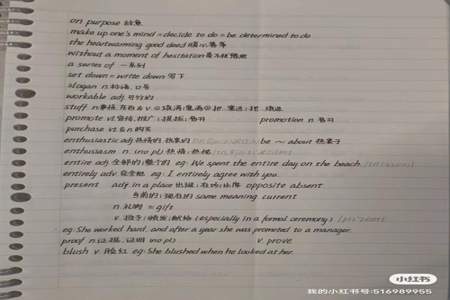 on purpose 故意
make up one's mind = decide to do = be determined to do
the heartwarming good deed 暖心善举
without a moment of hesitation 毫不犹豫
a series of 一系列
set down = write down 写下
slogan n.标语,口号
workable adj.可行的
stuff n.事物,东西
promote vt.宣传,推广;提拔;晋升 promotion n.晋升
purchase vt & n 购买
enthusiastic adj.热情的,热衷的 be ~ about 热衷于
enthusiasm n.(no pl.) 热情,热忱
entire adj.全部的,整个的 eg: We spent the entire day on the beach.
entirely adv.完全地 eg: I entirely agree with you.
present adj. in a place 出现;在场;出席 opposite absent
当前的;现在的 same meaning current
n.礼物 = gift
v. (especially in a formal ceremony)
eg: She worked hard, and after a year she was promoted to a manager.
proof n.证据,证明 (no pl.) v. prove
blush v 脸红 eg: She blushed when he looked at her.
小红书
我的小红书号:516989955